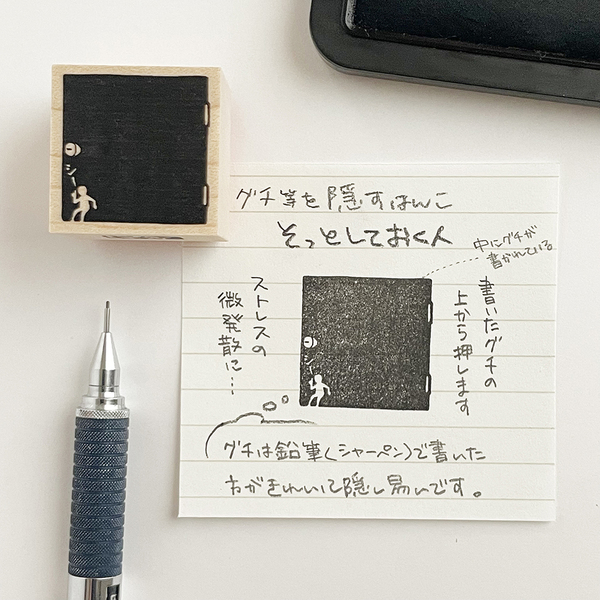 グチ等を隠すはんこ
そっとしておく人
中にグチが
書かれている
書いたグチの
上から押します
シー
シー
ストレスの
微発散に…
グチは鉛筆(シャーペン)で書いた
方がきれいに隠し易いです。